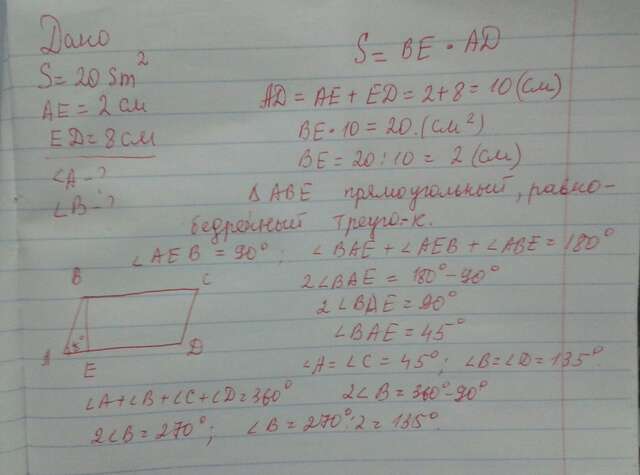 Дано
S = 20 Sm²
AE = 2 см
ED = 8 см
∠A - ?
∠B - ?
S = BE • AD
AD = AE + ED = 2+8 = 10 (см)
BE • 10 = 20. (см²)
BE = 20 : 10 = 2 (см)
Δ ABE прямоугольный, равно-
бедренный треуго-к.
∠AEB = 90° ; ∠BAE + ∠AEB + ∠ABE = 180°
2∠BAE = 180° - 90°
2∠BAE = 90°
∠BAE = 45°
∠A = ∠C = 45° ; ∠B = ∠D = 135°
B C
A 45° D
E
∠A+∠B+∠C+∠D = 360° 2∠B = 360° - 90°
2∠B = 270° ; ∠B = 270° : 2 = 135°